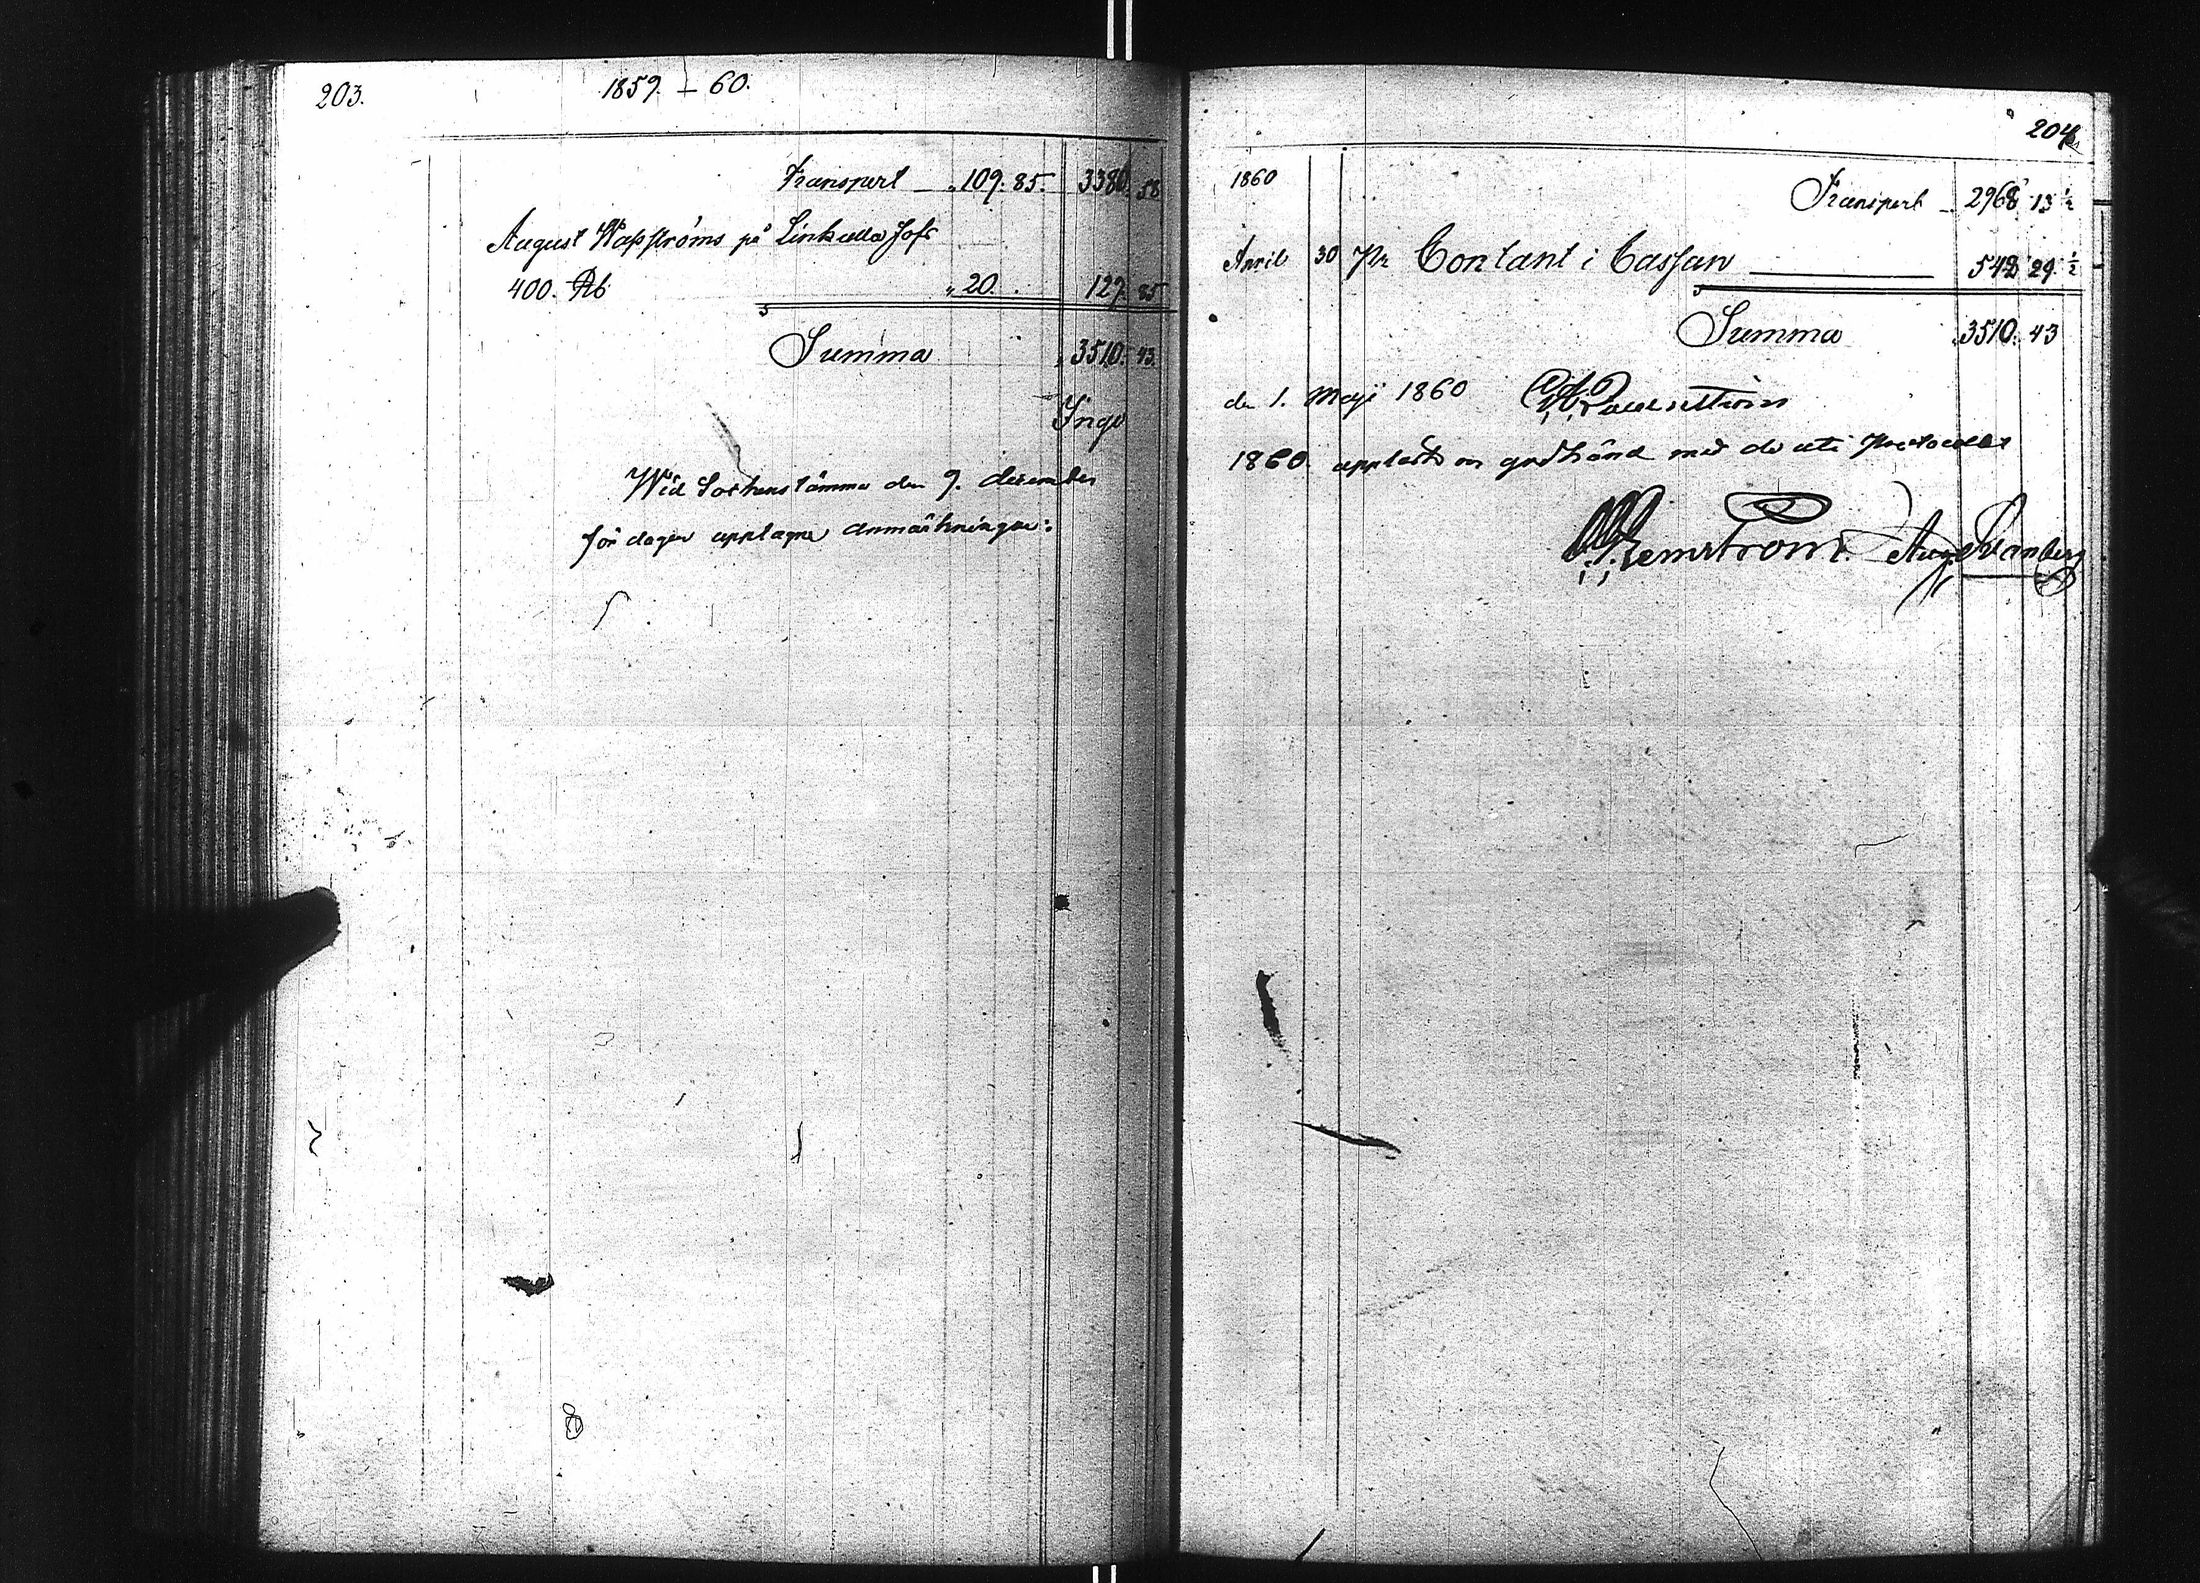 203.
1859. – 60.
Transport 109. 85. 3380. 58
August Wassströms på Linkulla
400. Rb 20. 129. 85
Summa 3510. 43.
Ingo
Wid Sockenstämma den 9. december
för dagen upptagna anmärkningar.
204
1860
Transport 2968 13 1/2
April 30 Pr Contant i Cassan 542 29 1/2
Summa 3510. 43
de 1. Maji 1860
1860. uppläst och godkänd med de uti Protocollet
Aug.